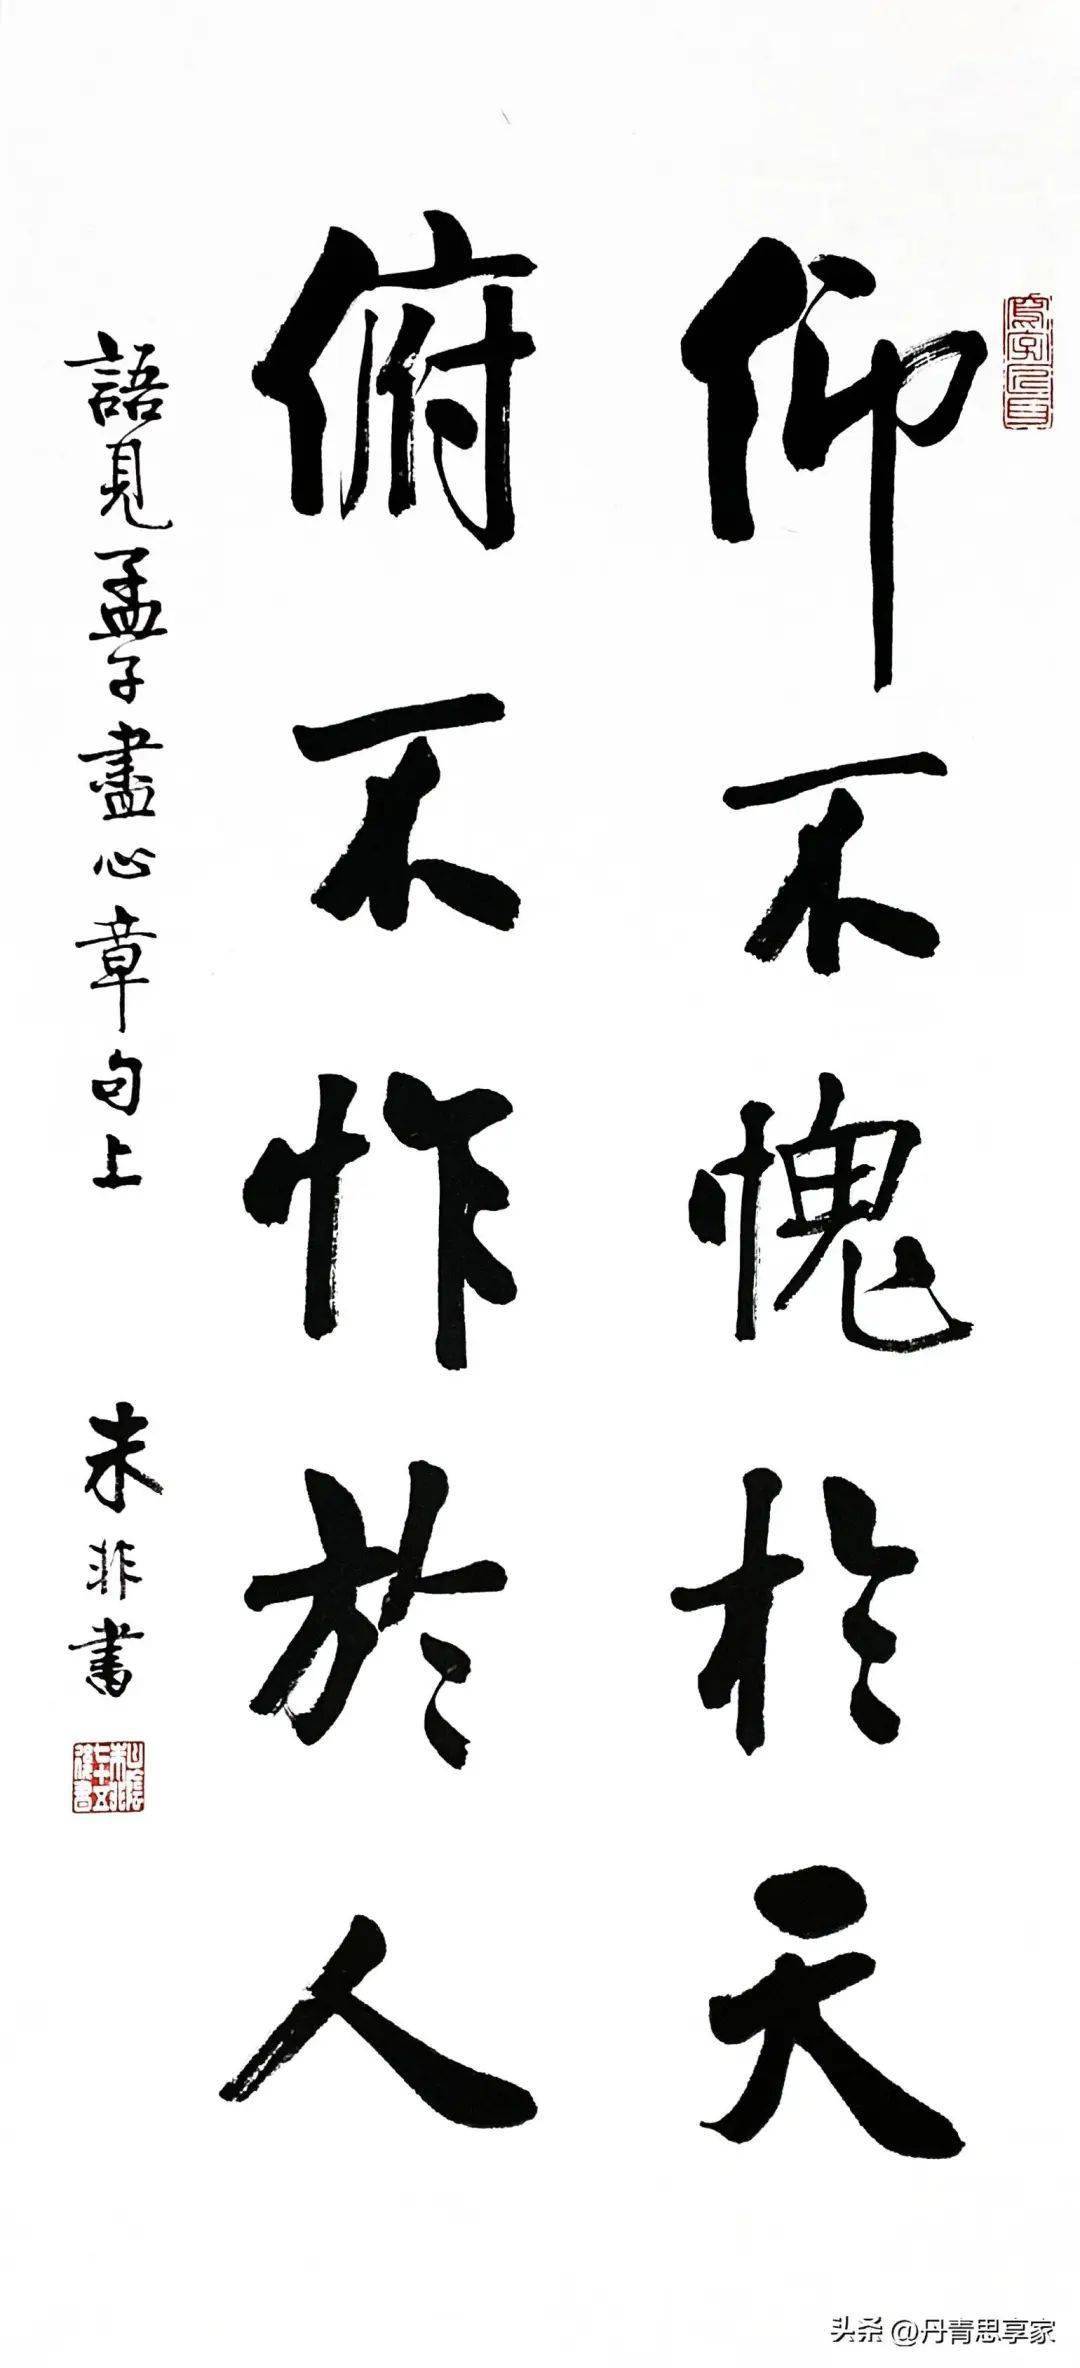 仰不愧於天
俯不怍於人
語見孟子盡心章句上
朱非書
头条 @丹青思享家